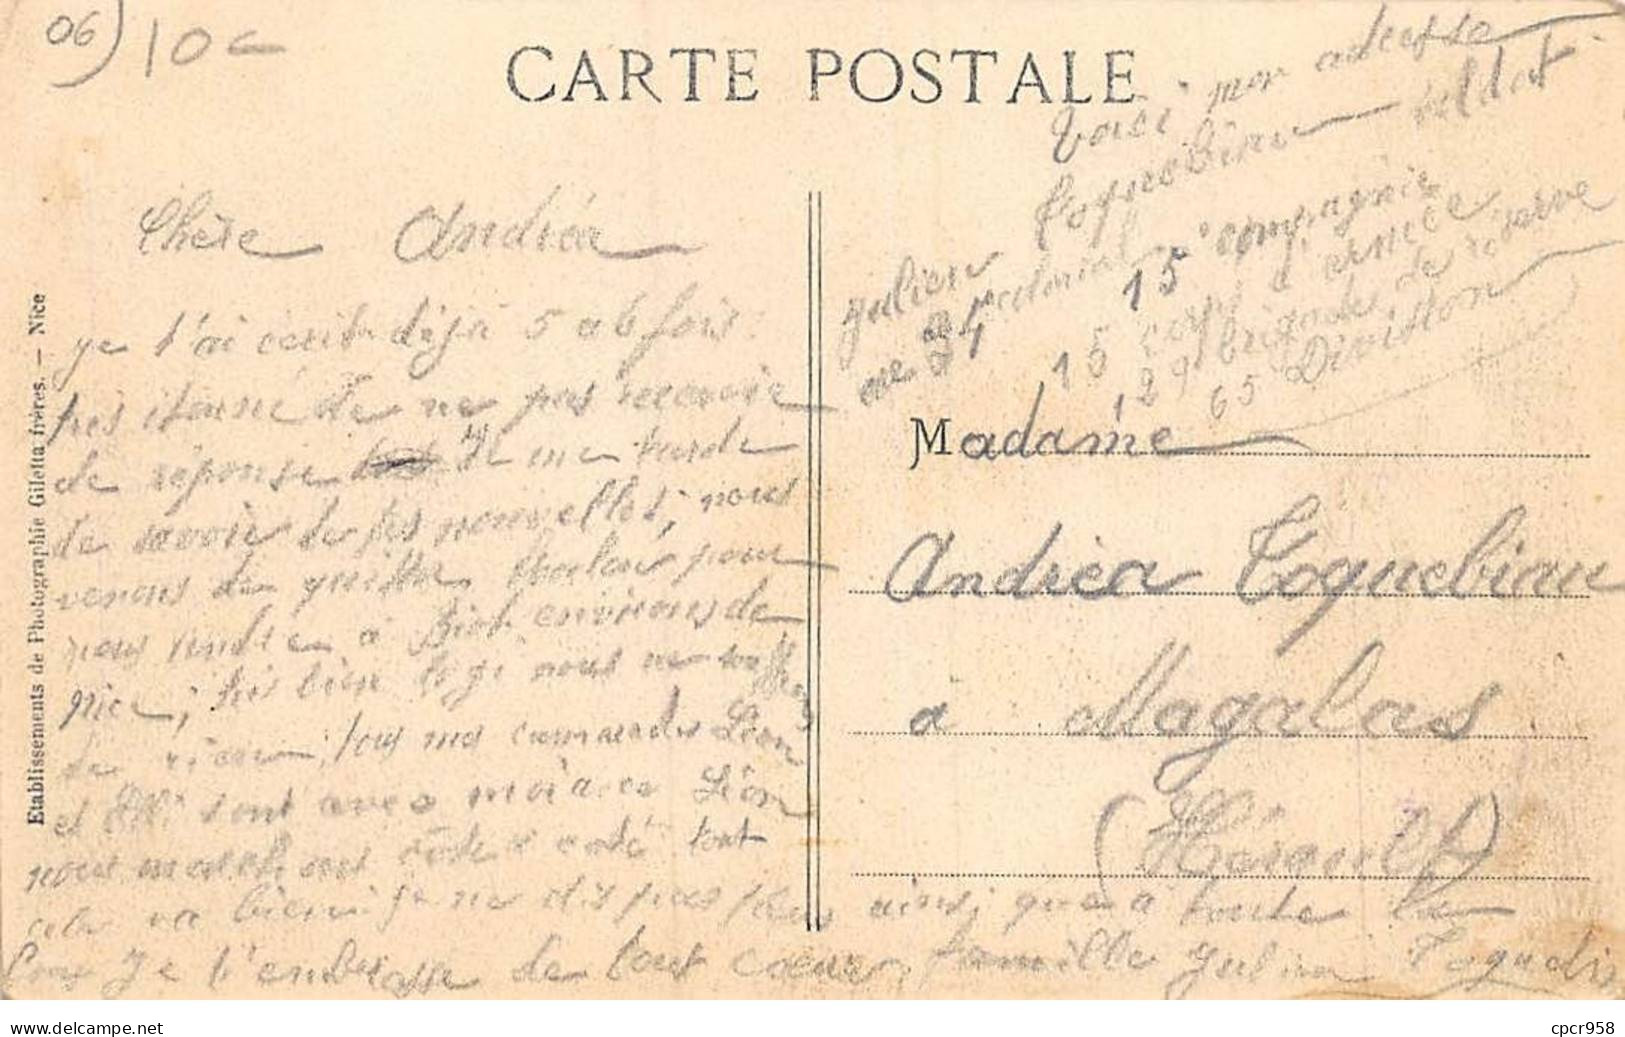 06) 10 c
CARTE POSTALE
Voici mon adresse
Coquebiau soldat
Julien
au 24e colonial 15e compagnie
15 corps d'armée
29 brigade de réserve
65 Division
Chère Andréa
Je t'ai écrit déjà 5 a 6 fois
très étonné de ne pas recevoir
de réponse Il me tarde
de savoir de tes nouvelles, nous
venons de quitter pour
nous rendre a Biot environs de
Nice, très bien logé nous ne
de rien tous mes camarades Léon
et sont avec moi avec Léon
nous marchons côte a coté tout
cela va bien je ne dis pas plus
Je t'embrasse de tout cœur ainsi que a toute la
famille Julien
Madame
Andréa Coquebiau
a Magalas
(Hérault)
Etablissements de Photographie Giletta frères. — Nice
www.delcampe.net
cpcr958